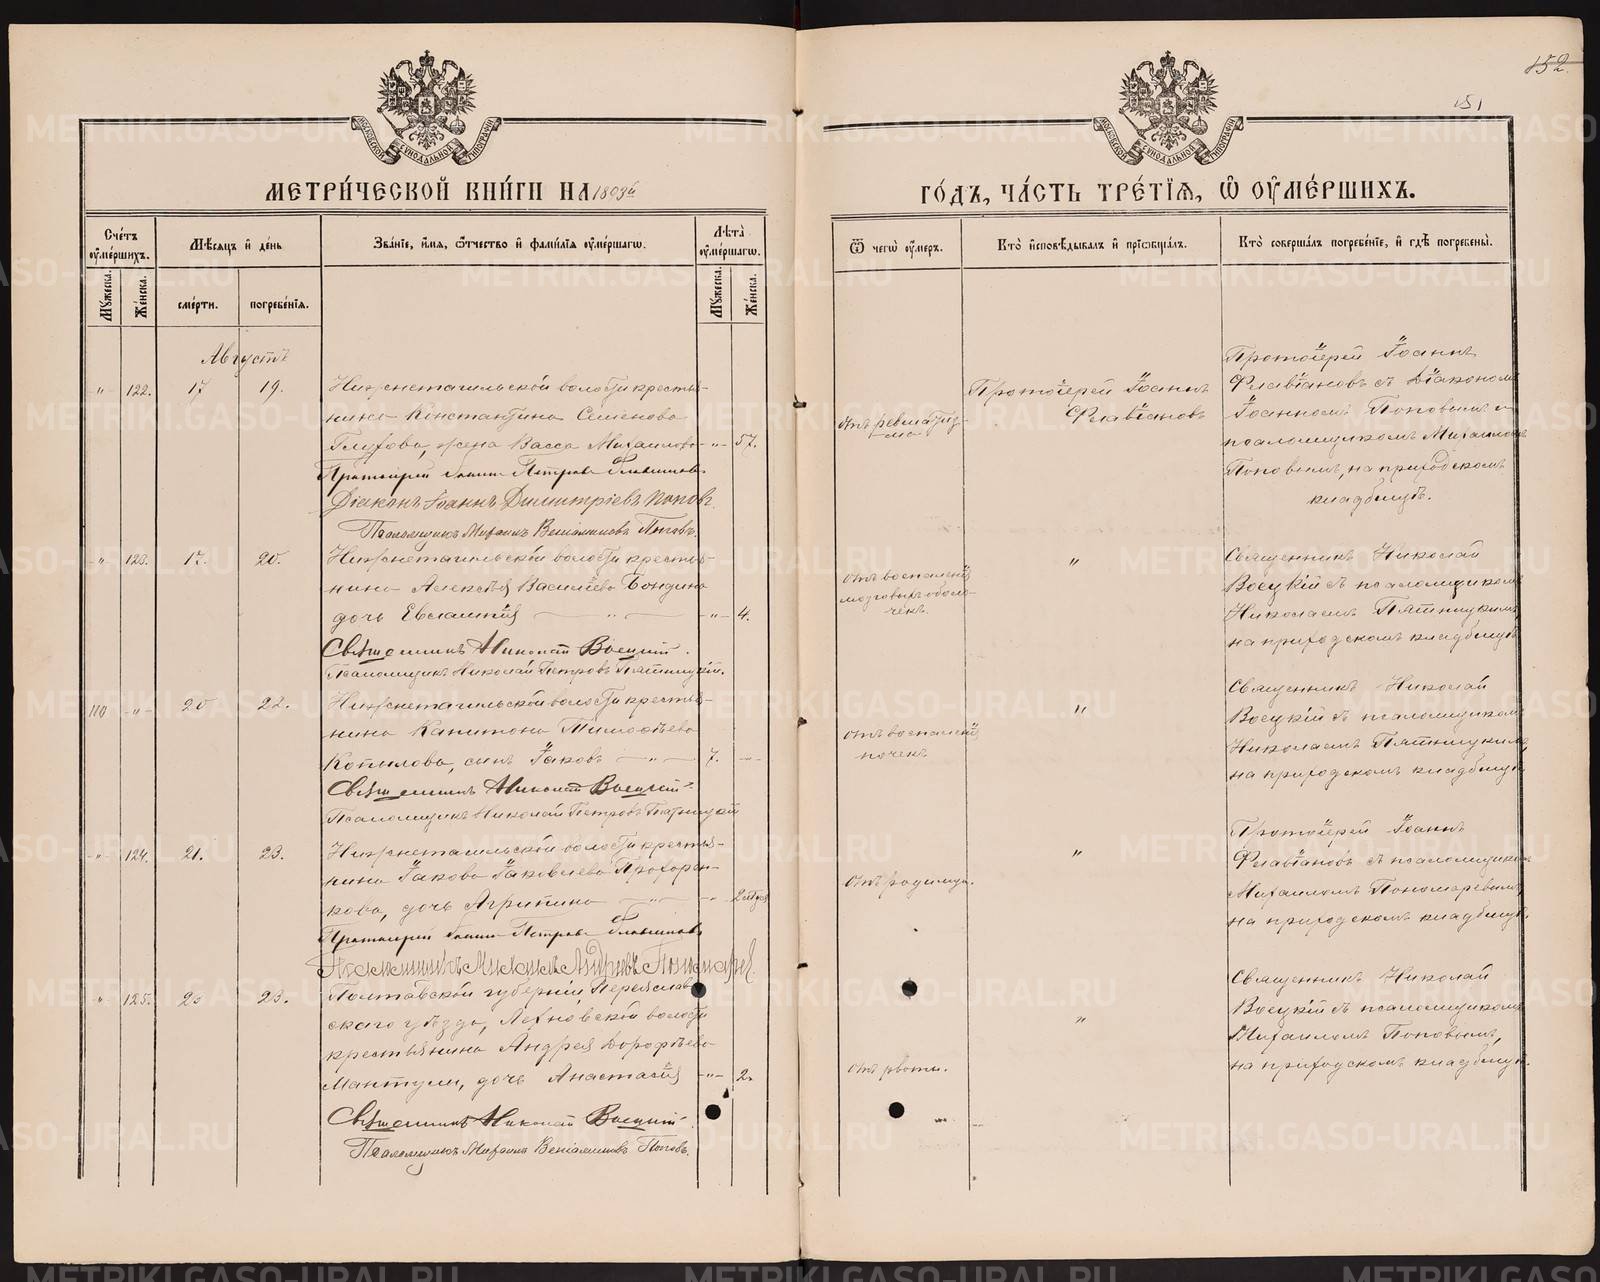 152.
151
МОСКОВСКОЙ СѴНОДАЛЬНОЙ ТИПОГРАФІИ
МОСКОВСКОЙ СѴНОДАЛЬНОЙ ТИПОГРАФІИ
МЕТРИ́ЧЕСКОЙ КНИ́ГИ НА 1893й
ГО́ДЪ, ЧА́СТЬ ТРЕ́ТІѦ, Ѡ҆ ОУ҆МЕ́РШИХЪ.
Сче́тъ оу҆ме́ршихъ.
Мѣ́сѧцъ и҆ де́нь
Зва́нїе, и҆́мѧ, ѻ҆́тчество и҆ фами́лїѧ оу҆ме́ршагѡ.
Лѣ̀та̀ оу҆ме́ршагѡ.
Ѿ чегѡ̀ оу҆́меръ.
Кто̀ и҆сповѣ́дывалъ и҆ прїѡбща́лъ.
Кто̀ соверша́лъ погребе́нїе, и҆ гдѣ̀ погребены̀.
Мꙋ́жеска.
Же́нска.
сме́рти.
погребе́нїѧ.
Мꙋ́жеска.
Же́нска.
Августъ
-"- 122. 17 19. Нижнетагильской волости крестья-
нина Константина Семенова
Глухова, жена Васса Михаилова -"- 57.
Протоіерей Іоаннъ Петровъ Флавіановъ
Діаконъ Іоаннъ Димитріевъ Поповъ.
Псаломщикъ Михаилъ Веніаминовъ Поповъ.
отъ ревматиз-
ма
Протоіерей Іоаннъ
Флавіановъ
Протоіерей Іоаннъ
Флавіановъ съ Діакономъ
Іоанномъ Поповымъ и
псаломщикомъ Михаиломъ
Поповымъ, на приходскомъ
кладбищѣ.
-"- 123. 17. 20. Нижнетагильской волости крестья-
нина Алексѣя Васильева Бондина
дочь Евлампія -"- -"- 4.
Священникъ Николай Воецкій.
Псаломщикъ Николай Петровъ Пятницкій.
отъ воспаленія
мозговыхъ оболо-
чекъ.
"
Священникъ Николай
Воецкій съ псаломщикомъ
Николаемъ Пятницкимъ,
на приходскомъ кладбищѣ
110 -"- 20 22. Нижнетагильской волости крестья-
нина Капитона Тимоѳѣева
Копылова, сынъ Іаковъ -"- 7. -"-
Священникъ Николай Воецкій.
Псаломщикъ Николай Петровъ Пятницкій
отъ воспаленія
почекъ.
"
Священникъ Николай
Воецкій съ псаломщикомъ
Николаемъ Пятницкимъ,
на приходскомъ кладбищѣ
-"- 124. 21. 23. Нижнетагильской волости крестья-
нина Іакова Іаковлева Прохорен-
кова, дочь Агрипина -"- -"-
Протоіерей Іоаннъ Петровъ Флавіановъ
Псаломщикъ Михаилъ Андреевъ Пономаревъ.
отъ родимца.
"
Протоіерей Іоаннъ
Флавіановъ съ псаломщикомъ
Михаиломъ Пономаревымъ,
на приходскомъ кладбищѣ.
" 125. 23. Полтавской губерніи, Переяслав-
скаго уѣзда, волости
крестьянина Андрея Дорофѣева
Мантули, дочь Анастасія -"- 2.
Священникъ Николай Воецкій.
Псаломщикъ Михаилъ Веніаминовъ Поповъ.
отъ рвоты.
"
Священникъ Николай
Воецкій съ псаломщикомъ
Михаиломъ Поповымъ,
на приходскомъ кладбищѣ.
METRIKI.GASO-URAL.RU